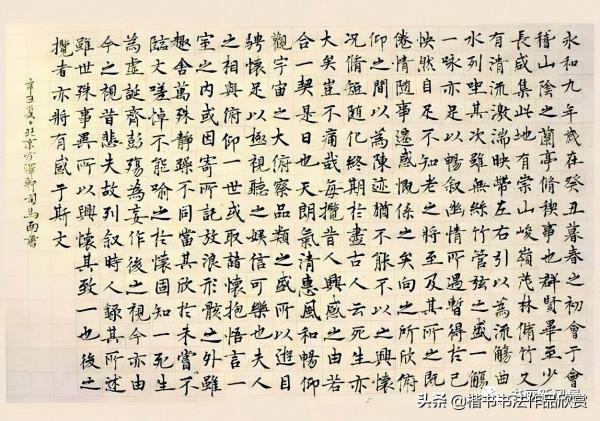 永和九年歲在癸丑暮春之初會于會
稽山陰之蘭亭脩稧事也群賢畢至少
長咸集此地有崇山峻嶺茂林脩竹又
有清流激湍暎帶左右引以為流觴曲
水列坐其次雖無絲竹管弦之盛一觴
一咏亦足以暢叙幽情所遇暫得於己
怏然自足不知老之將至及其所之既
倦情隨事遷感慨係之矣向之所欣俯
仰之間以為陳迹猶不能不以之興懷
況脩短隨化終期於盡古人云死生亦
大矣豈不痛哉每攬昔人興感之由若
合一契是日也天朗氣清惠風和暢仰
觀宇宙之大俯察品類之盛所以遊目
騁懷足以極視聽之娛信可樂也夫人
之相與俯仰一世或取諸懷抱悟言一
室之內或因寄所託放浪形骸之外雖
趣舍萬殊靜躁不同當其欣於未嘗不
臨文嗟悼不能喻之於懷固知一死生
為虛誕齊彭殤為妄作後之視今亦由
今之視昔悲夫故列叙時人錄其所述
雖世殊事異所以興懷其致一也後之
攬者亦將有感于斯文
辛丑夏日北京方澤軒司馬雨書
头条 @楷书书法作品欣赏